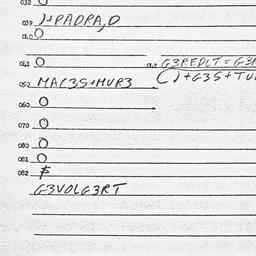 032 O
039 )+PADPA,O
040 O
041 O
042 G3REDLT=G3
()+G3S+TU
050 MAC3S+MUR3
060 O
070 O
080 O
081 O
082 $
G3VOLG3RT